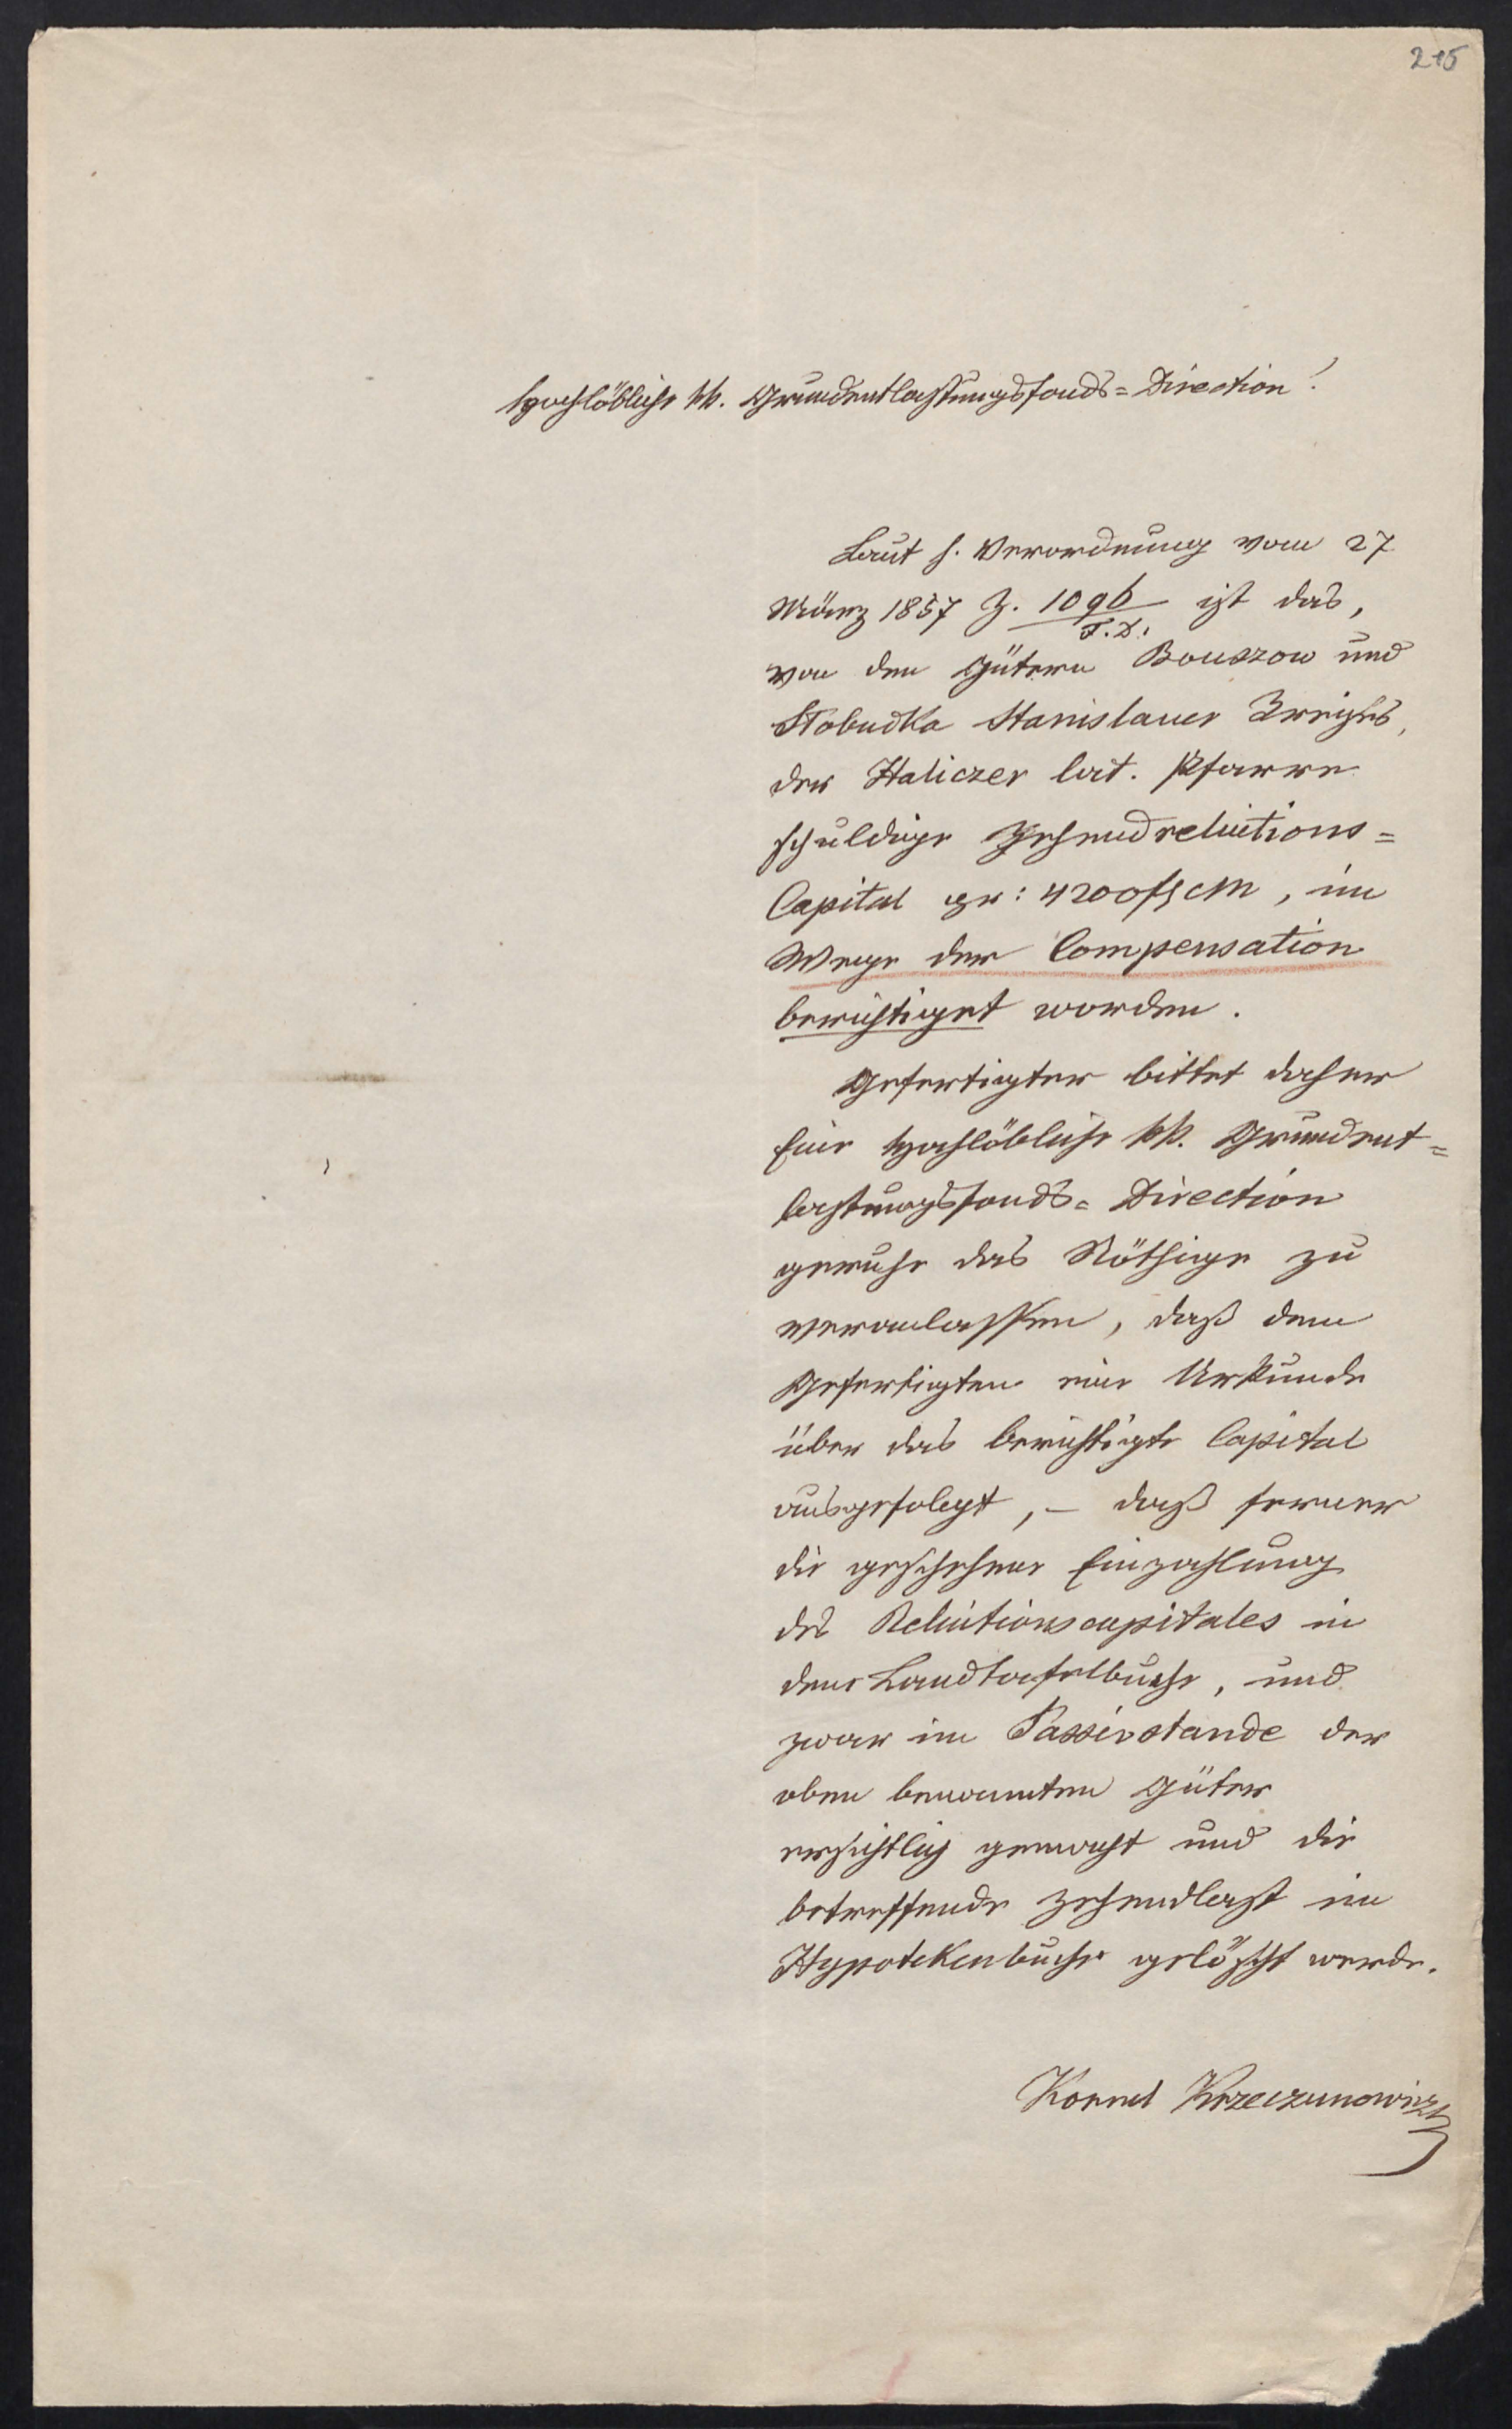 215
Hochlöbliche kk. Grundentlastungsfonds=Direction!
Laut h. Verordnung vom 27
März 1857 Z. 1096/F.D. ist das,
von den Gütern Bouszow und
Slobudka Stanislauer Kreises,
der Haliczer lat. Pfarre
schuldige Zehendreluitions=
Capital gr: 4200 f CM, im
Wege der Compensation
berichtiget worden.
Gefertigter bittet daher
Eine hochlöbliche kk. Grundent=
lastungsfonds=Direction
geruhe das Nöthige zu
veranlassen, daß dem
Gefertigten eine Urkunde
über das berichtigte Capital
ausgefolgt, – daß ferner
die geschehene Einzahlung
des Reluitionscapitales in
dem Landtafelbuche, und
zwar im Passivstande der
oben benannten Güter
ersichtlich gemacht und die
betreffende Zehendlast im
Hypotekenbuche gelöscht werde.
Kornel Krzeczunowicz